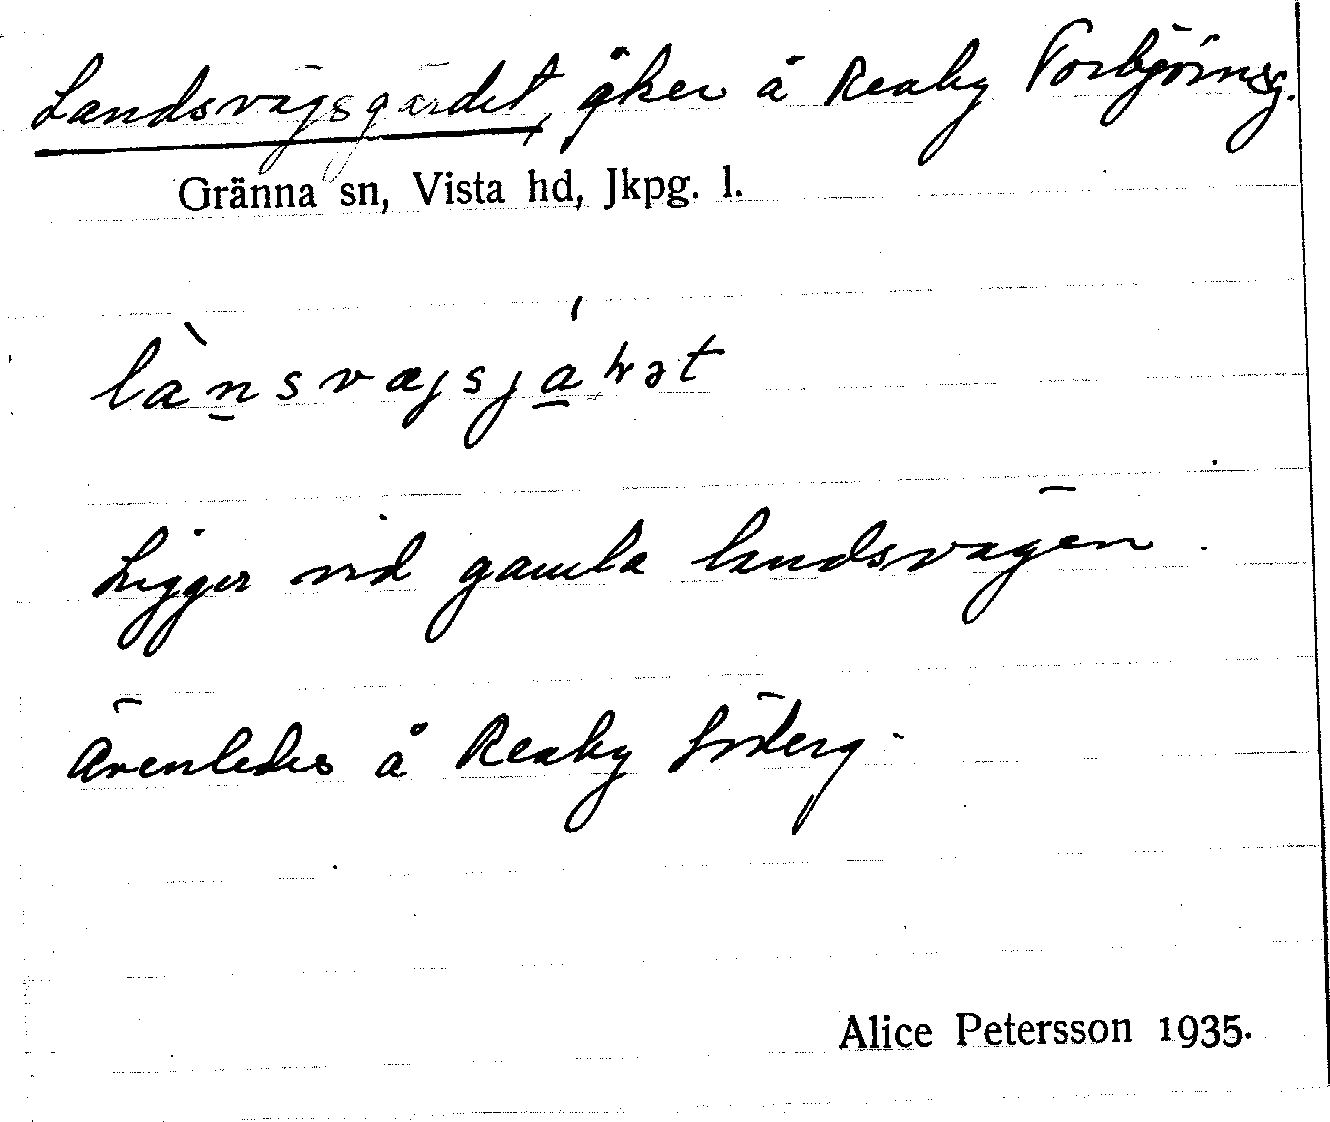 Landsvägsgärdet, åker å Reaby Torbjörnsg.
Gränna sn, Vista hd, Jkpg. l.
Ligger vid gamla landsvägen.
Ävenledes å Reaby Söderg.
Alice Petersson 1935.